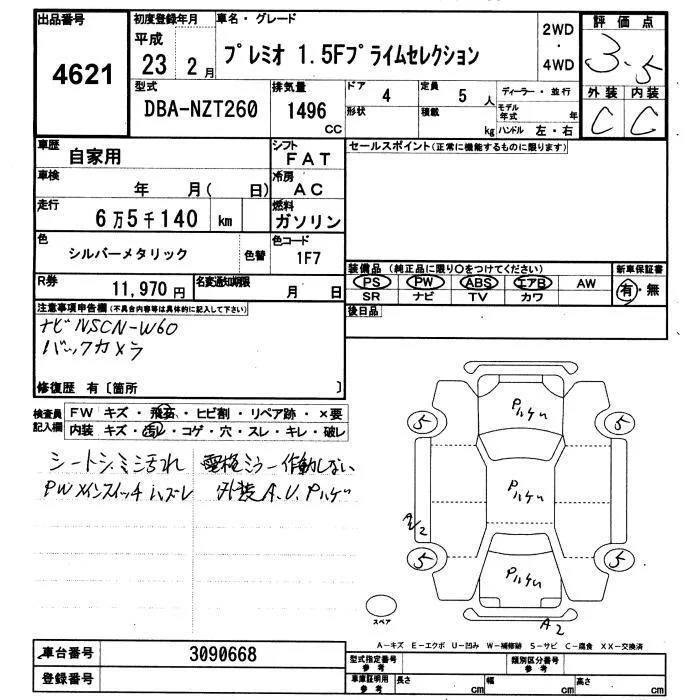 出品番号
4621
初度登録年月
平成
23 2月
車名・グレード
プレミオ 1.5Fプライムセレクション
2WD
・
4WD
評価点
3.5
外装 内装
C C
型式
DBA-NZT260
排気量
1496
CC
ドア
4
形状
定員
5 人
積載
kg
ディーラー・並行
モデル年式 年
ハンドル 左・右
車歴
自家用
シフト
FAT
セールスポイント(正常に機能するものに限ります)
車検
年 月( 日)
冷房
AC
走行
6万5千140 km
燃料
ガソリン
色
シルバーメタリック
色替
色コード
1F7
R券
11,970円
名変通知期限
月 日
装備品(純正品に限り○をつけてください)
PS PW ABS エアB AW
SR ナビ TV カワ
新車保証書
有・無
後日品
注意事項申告欄(不具合内容等は具体的に記入して下さい)
ナビNSCN-W60
バックカメラ
修復歴 有〔箇所 〕
検査員記入欄
FW キズ・飛石・ヒビ割・リペア跡・×要
内装 キズ・汚レ・コゲ・穴・スレ・キレ・破レ
シートシミ汚れ 電格ミラー作動しない
PWメインスイッチハズレ 外装A.U.Pハゲ
Pハゲ
5 5
Pハゲ
A/2
5 5
Pハゲ
スペア
A2
A-キズ E-エクボ U-凹み W-補修跡 S-サビ C-腐食 XX-交換済
車台番号
3090668
登録番号
型式指定番号
参考
類別区分番号
参考
車庫証明用
参考
長さ cm
幅 cm
高さ cm